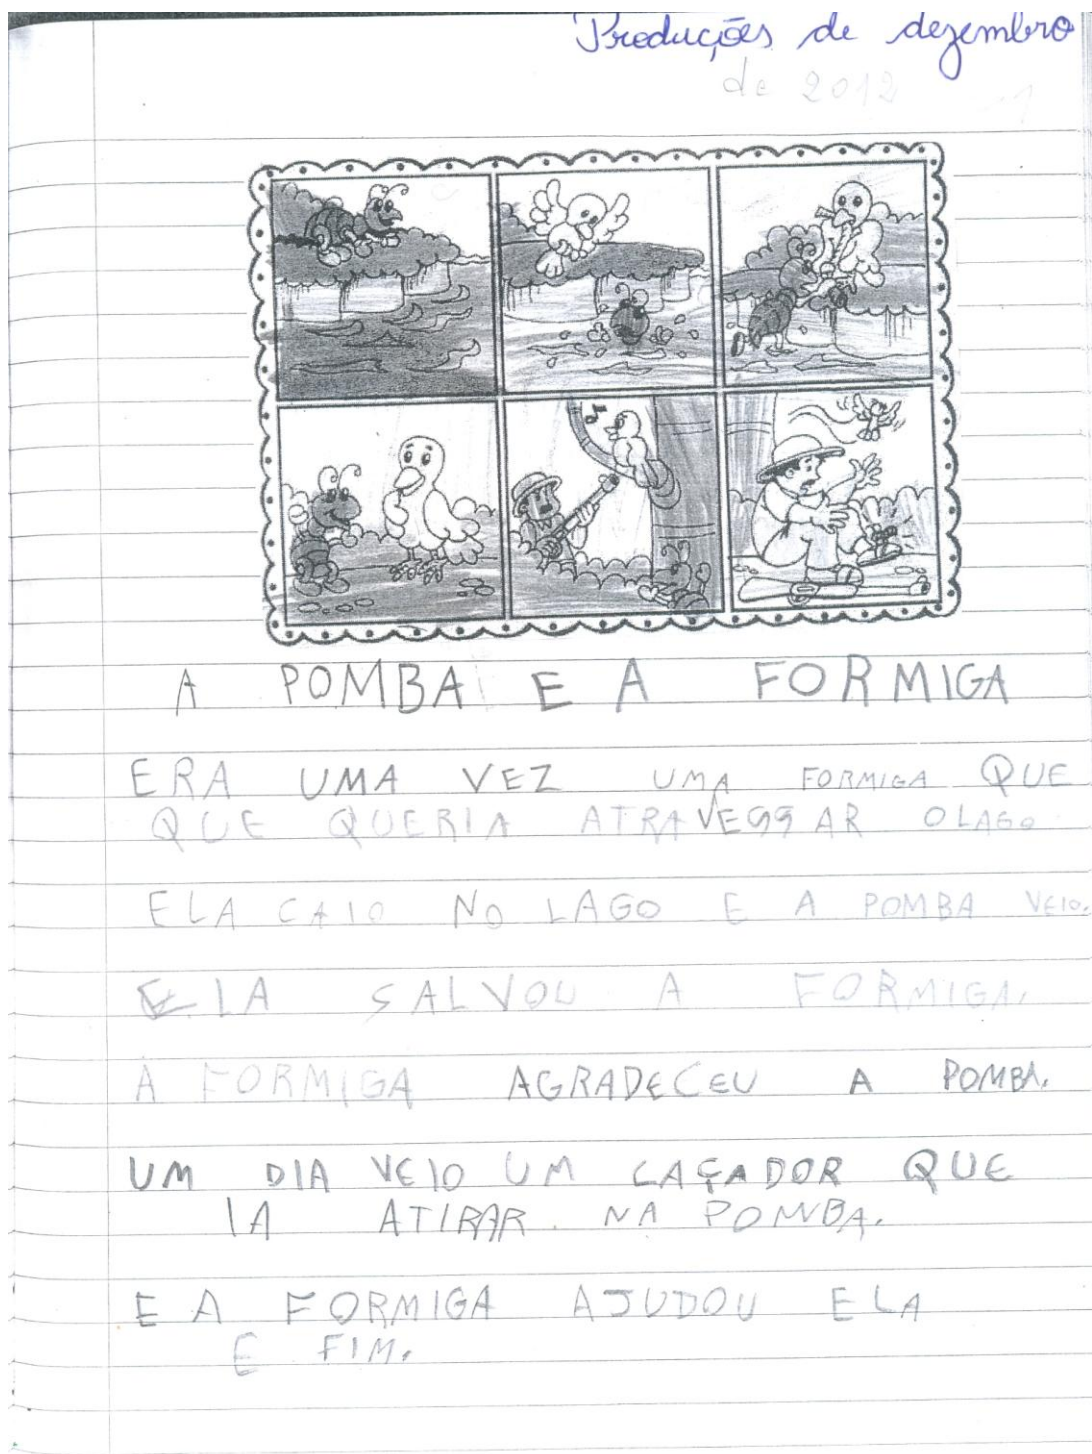 Produções de dezembro
de 2012
1
A POMBA E A FORMIGA
ERA UMA VEZ UMA FORMIGA QUE
QUE QUERIA ATRAVESSAR O LAGO
ELA CAIO NO LAGO E A POMBA VEIO.
ELA SALVOU A FORMIGA.
A FORMIGA AGRADECEU A POMBA.
UM DIA VEIO UM CAÇADOR QUE
IA ATIRAR NA POMBA.
E A FORMIGA AJUDOU ELA
E FIM.